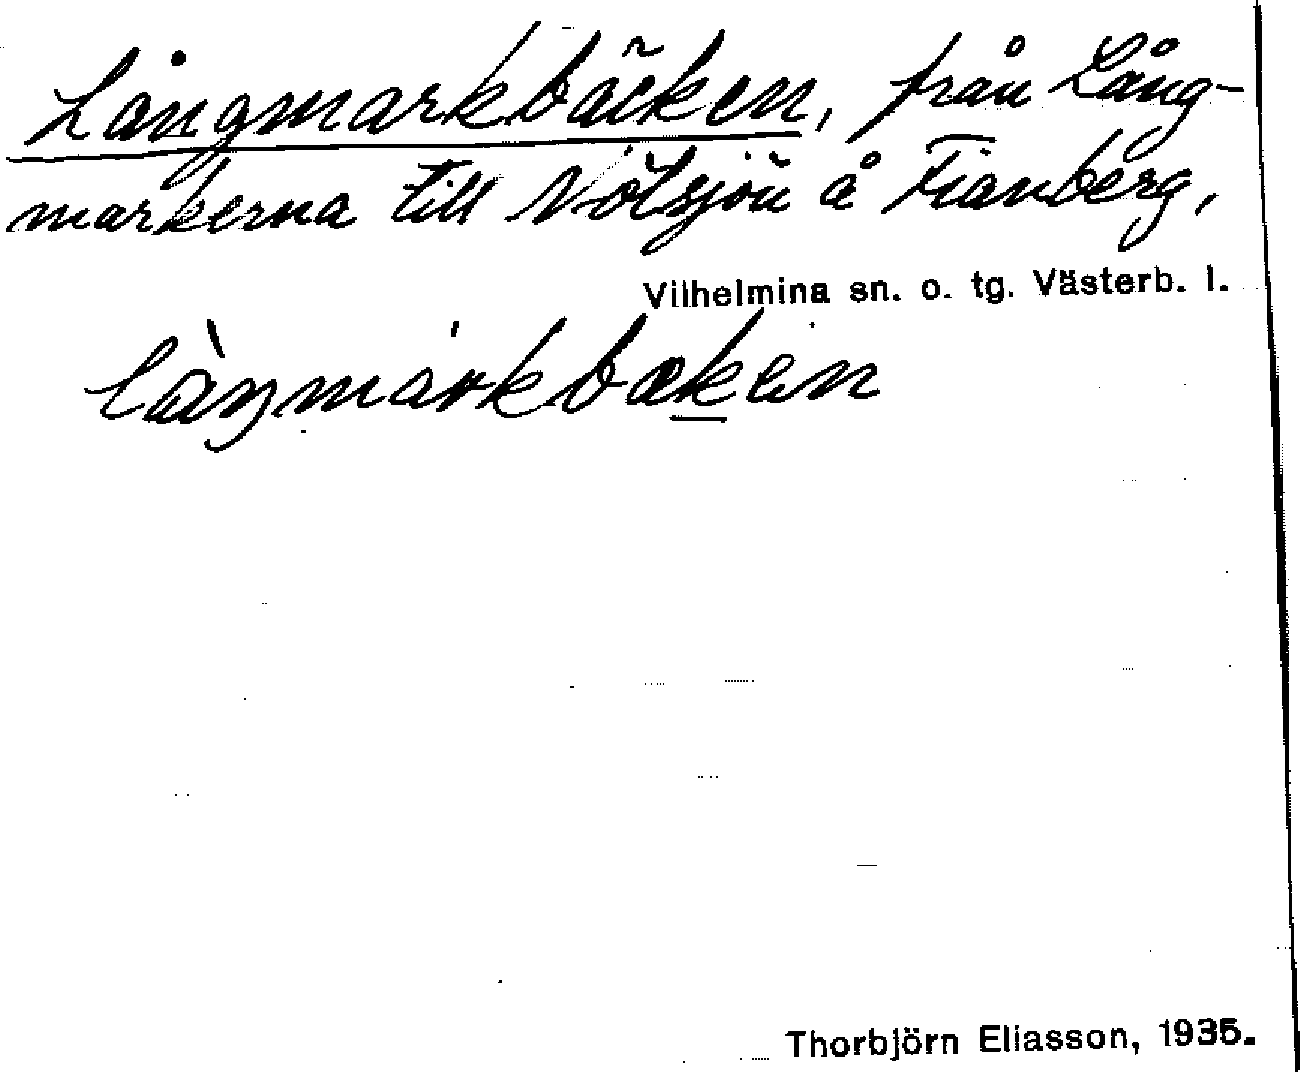 Långmarkbäcken, från Lång-
markerna till Nötsjön å Fianberg,
Vilhelmina sn. o. tg. Västerb. l.
làŋmárkbækən
Thorbjörn Eliasson, 1935.